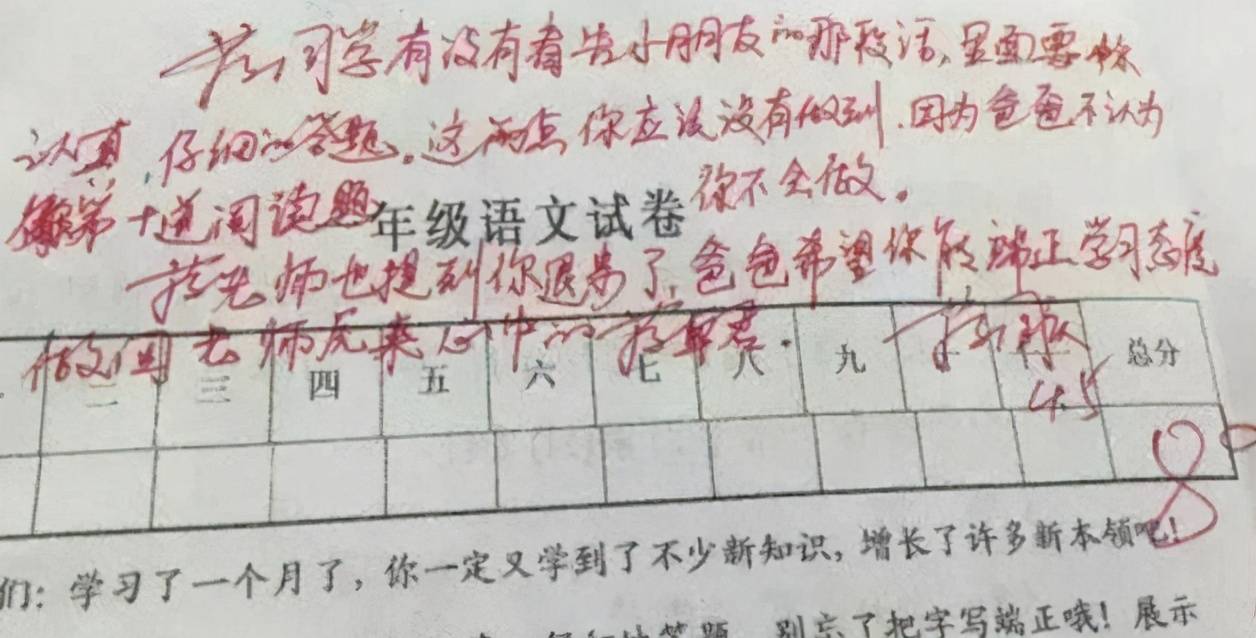 蒋同学有没有看告小朋友的那段话,里面要你
认真,仔细的答题。这两点你应该没有做到.因为爸爸不认为
第十道阅读题 你不会做。
年级语文试卷
蒋老师也提到你退步了,爸爸希望你能端正学习态度
做回老师原来心中的蒋
4.5
二 三 四 五 六 七 八 九 十 总分
8
们:学习了一个月了,你一定又学到了不少新知识,增长了许多新本领吧!
答题 别忘了把字写端正哦!展示